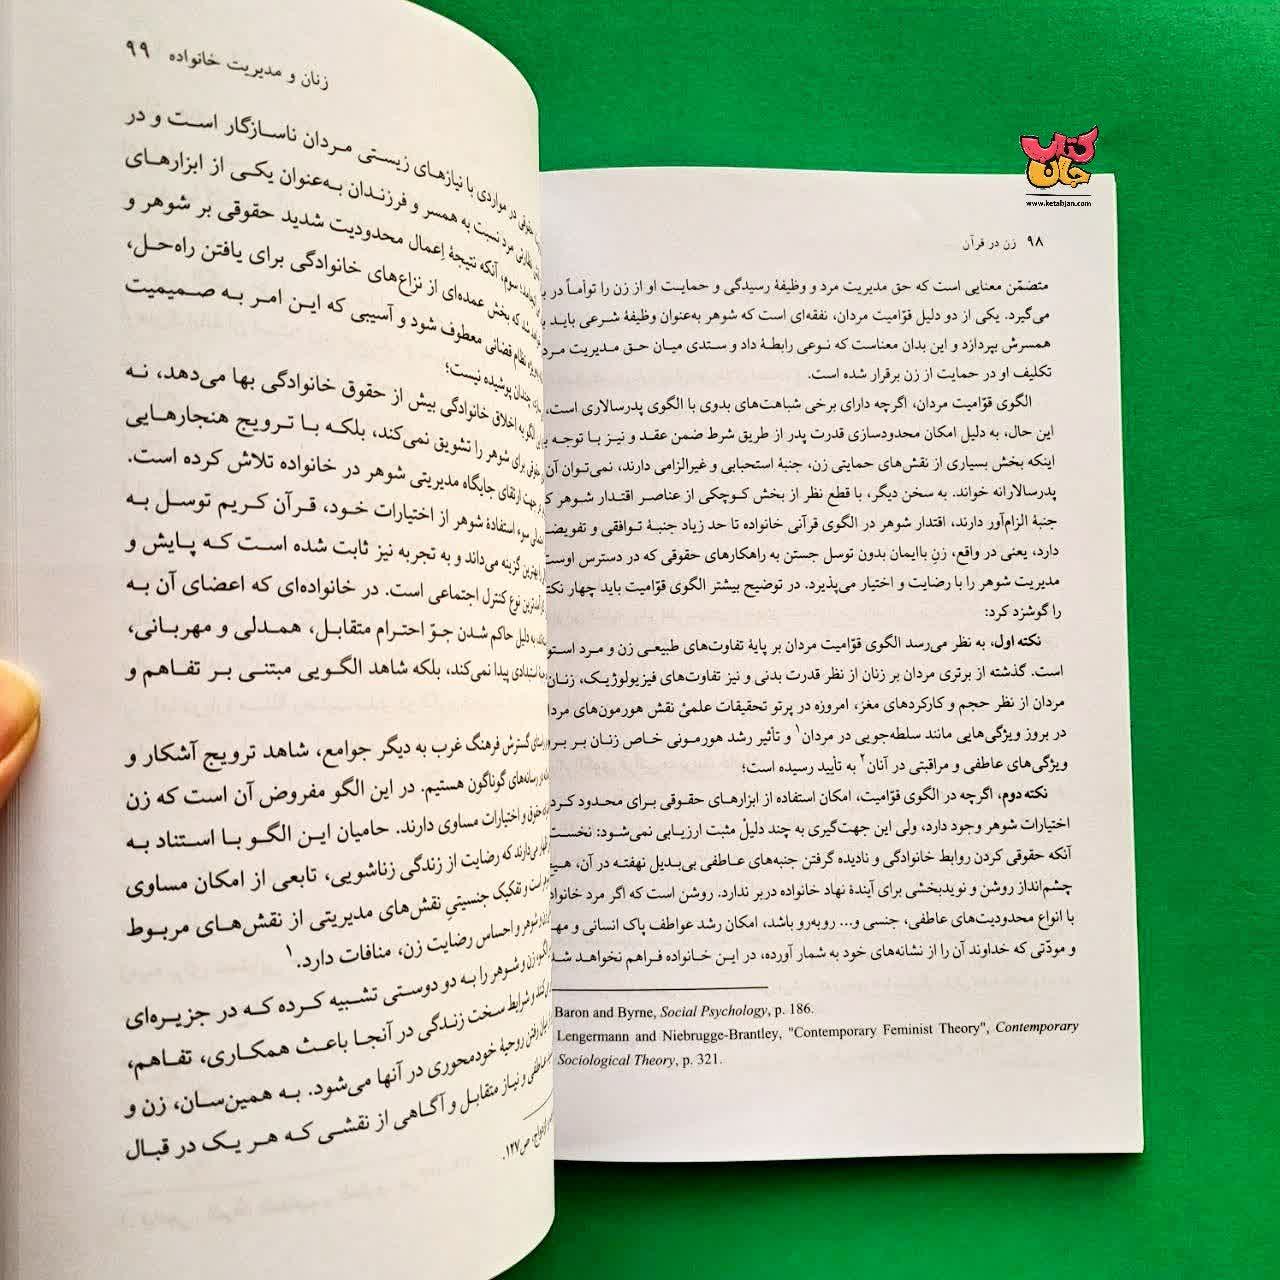 کتاب
جان
www.ketabjan.com
۹۸ زن در قرآن
متضمّن معنایی است که حق مدیریت مرد و وظیفهٔ رسیدگی و حمایت او از زن را توأماً در
می‌گیرد. یکی از دو دلیل قوّامیت مردان، نفقه‌ای است که شوهر به‌عنوان وظیفهٔ شرعی باید
همسرش بپردازد و این بدان معناست که نوعی رابطهٔ داد و ستدی میان حق مدیریت
تکلیف او در حمایت از زن برقرار شده است.
الگوی قوّامیت مردان، اگرچه دارای برخی شباهت‌های بدوی با الگوی پدرسالاری است،
این حال، به دلیل امکان محدودسازی قدرت پدر از طریق شرط ضمن عقد و نیز با توجه
اینکه بخش بسیاری از نقش‌های حمایتی زن، جنبهٔ استحبابی و غیرالزامی دارند، نمی‌توان آن
پدرسالارانه خواند. به سخن دیگر، با قطع نظر از بخش کوچکی از عناصر اقتدار شوهر
جنبهٔ الزام‌آور دارند، اقتدار شوهر در الگوی قرآنی خانواده تا حد زیاد جنبهٔ توافقی و
دارد، یعنی در واقع، زنِ باایمان بدون توسل جستن به راهکارهای حقوقی که در دسترس اوست
مدیریت شوهر را با رضایت و اختیار می‌پذیرد. در توضیح بیشتر الگوی قوّامیت باید چهار
را گوشزد کرد:
نکته اول، به نظر می‌رسد الگوی قوّامیت مردان بر پایهٔ تفاوت‌های طبیعی زن و مرد
است. گذشته از برتری مردان بر زنان از نظر قدرت بدنی و نیز تفاوت‌های فیزیولوژیک، زنان
مردان از نظر حجم و کارکردهای مغز، امروزه در پرتو تحقیقات علمیْ نقش هورمون‌های
در بروز ویژگی‌هایی مانند سلطه‌جویی در مردان۱ و تأثیر رشد هورمونی خاص زنان بر
ویژگی‌های عاطفی و مراقبتی در آنان۲ به تأیید رسیده است؛
نکته دوم، اگرچه در الگوی قوّامیت، امکان استفاده از ابزارهای حقوقی برای محدود
اختیارات شوهر وجود دارد، ولی این جهت‌گیری به چند دلیلْ مثبت ارزیابی نمی‌شود: نخست
آنکه حقوقی کردن روابط خانوادگی و نادیده گرفتن جنبه‌های عاطفی بی‌بدیل نهفته در آن،
چشم‌انداز روشن و نویدبخشی برای آیندهٔ نهاد خانواده دربر ندارد. روشن است که اگر مرد
با انواع محدودیت‌های عاطفی، جنسی و... روبه‌رو باشد، امکان رشد عواطف پاک انسانی و
و مودّتی که خداوند آن را از نشانه‌های خود به شمار آورده، در این خانواده فراهم نخواهد
Baron and Byrne, Social Psychology, p. 186.
Lengermann and Niebrugge-Brantley, "Contemporary Feminist Theory", Contemporary
Sociological Theory, p. 321.
زنان و مدیریت خانواده ۹۹
در مواردی با نیازهای زیستی مردان ناسازگار است و در
نظارتی مرد نسبت به همسر و فرزندان به‌عنوان یکی از ابزارهای
سوم، آنکه نتیجهٔ اِعمال محدودیت شدید حقوقی بر شوهر و
که بخش عمده‌ای از نزاع‌های خانوادگی برای یافتن راه‌حل،
نظام قضائی معطوف شود و آسیبی که این امر به صمیمیت
چندان پوشیده نیست؛
الگو به اخلاق خانوادگی بیش از حقوق خانوادگی بها می‌دهد، نه
برای شوهر را تشویق نمی‌کند، بلکه با ترویج هنجارهایی
جهت ارتقای جایگاه مدیریتی شوهر در خانواده تلاش کرده است.
سوء استفادهٔ شوهر از اختیارات خود، قرآن کریم توسل به
بهترین گزینه می‌داند و به تجربه نیز ثابت شده است که پایش و
نوع کنترل اجتماعی است. در خانواده‌ای که اعضای آن به
به دلیل حاکم شدن جوّ احترام متقابل، همدلی و مهربانی،
استبدادی پیدا نمی‌کند، بلکه شاهد الگویی مبتنی بر تفاهم و
گسترش فرهنگ غرب به دیگر جوامع، شاهد ترویج آشکار و
رسانه‌های گوناگون هستیم. در این الگو مفروض آن است که زن
حقوق و اختیارات مساوی دارند. حامیان این الگو با استناد به
می‌دارند که رضایت از زندگی زناشویی، تابعی از امکان مساوی
است و تفکیک جنسیتیِ نقش‌های مدیریتی از نقش‌های مربوط
شوهر و احساس رضایت زن، منافات دارد.۱
زن و شوهر را به دو دوستی تشبیه کرده که در جزیره‌ای
و شرایط سخت زندگی در آنجا باعث همکاری، تفاهم،
رفتن روحیهٔ خودمحوری در آنها می‌شود. به همین‌سان، زن و
و نیاز متقابل و آگاهی از نقشی که هر یک در قبال
ازدواج، ص۱۲۷.